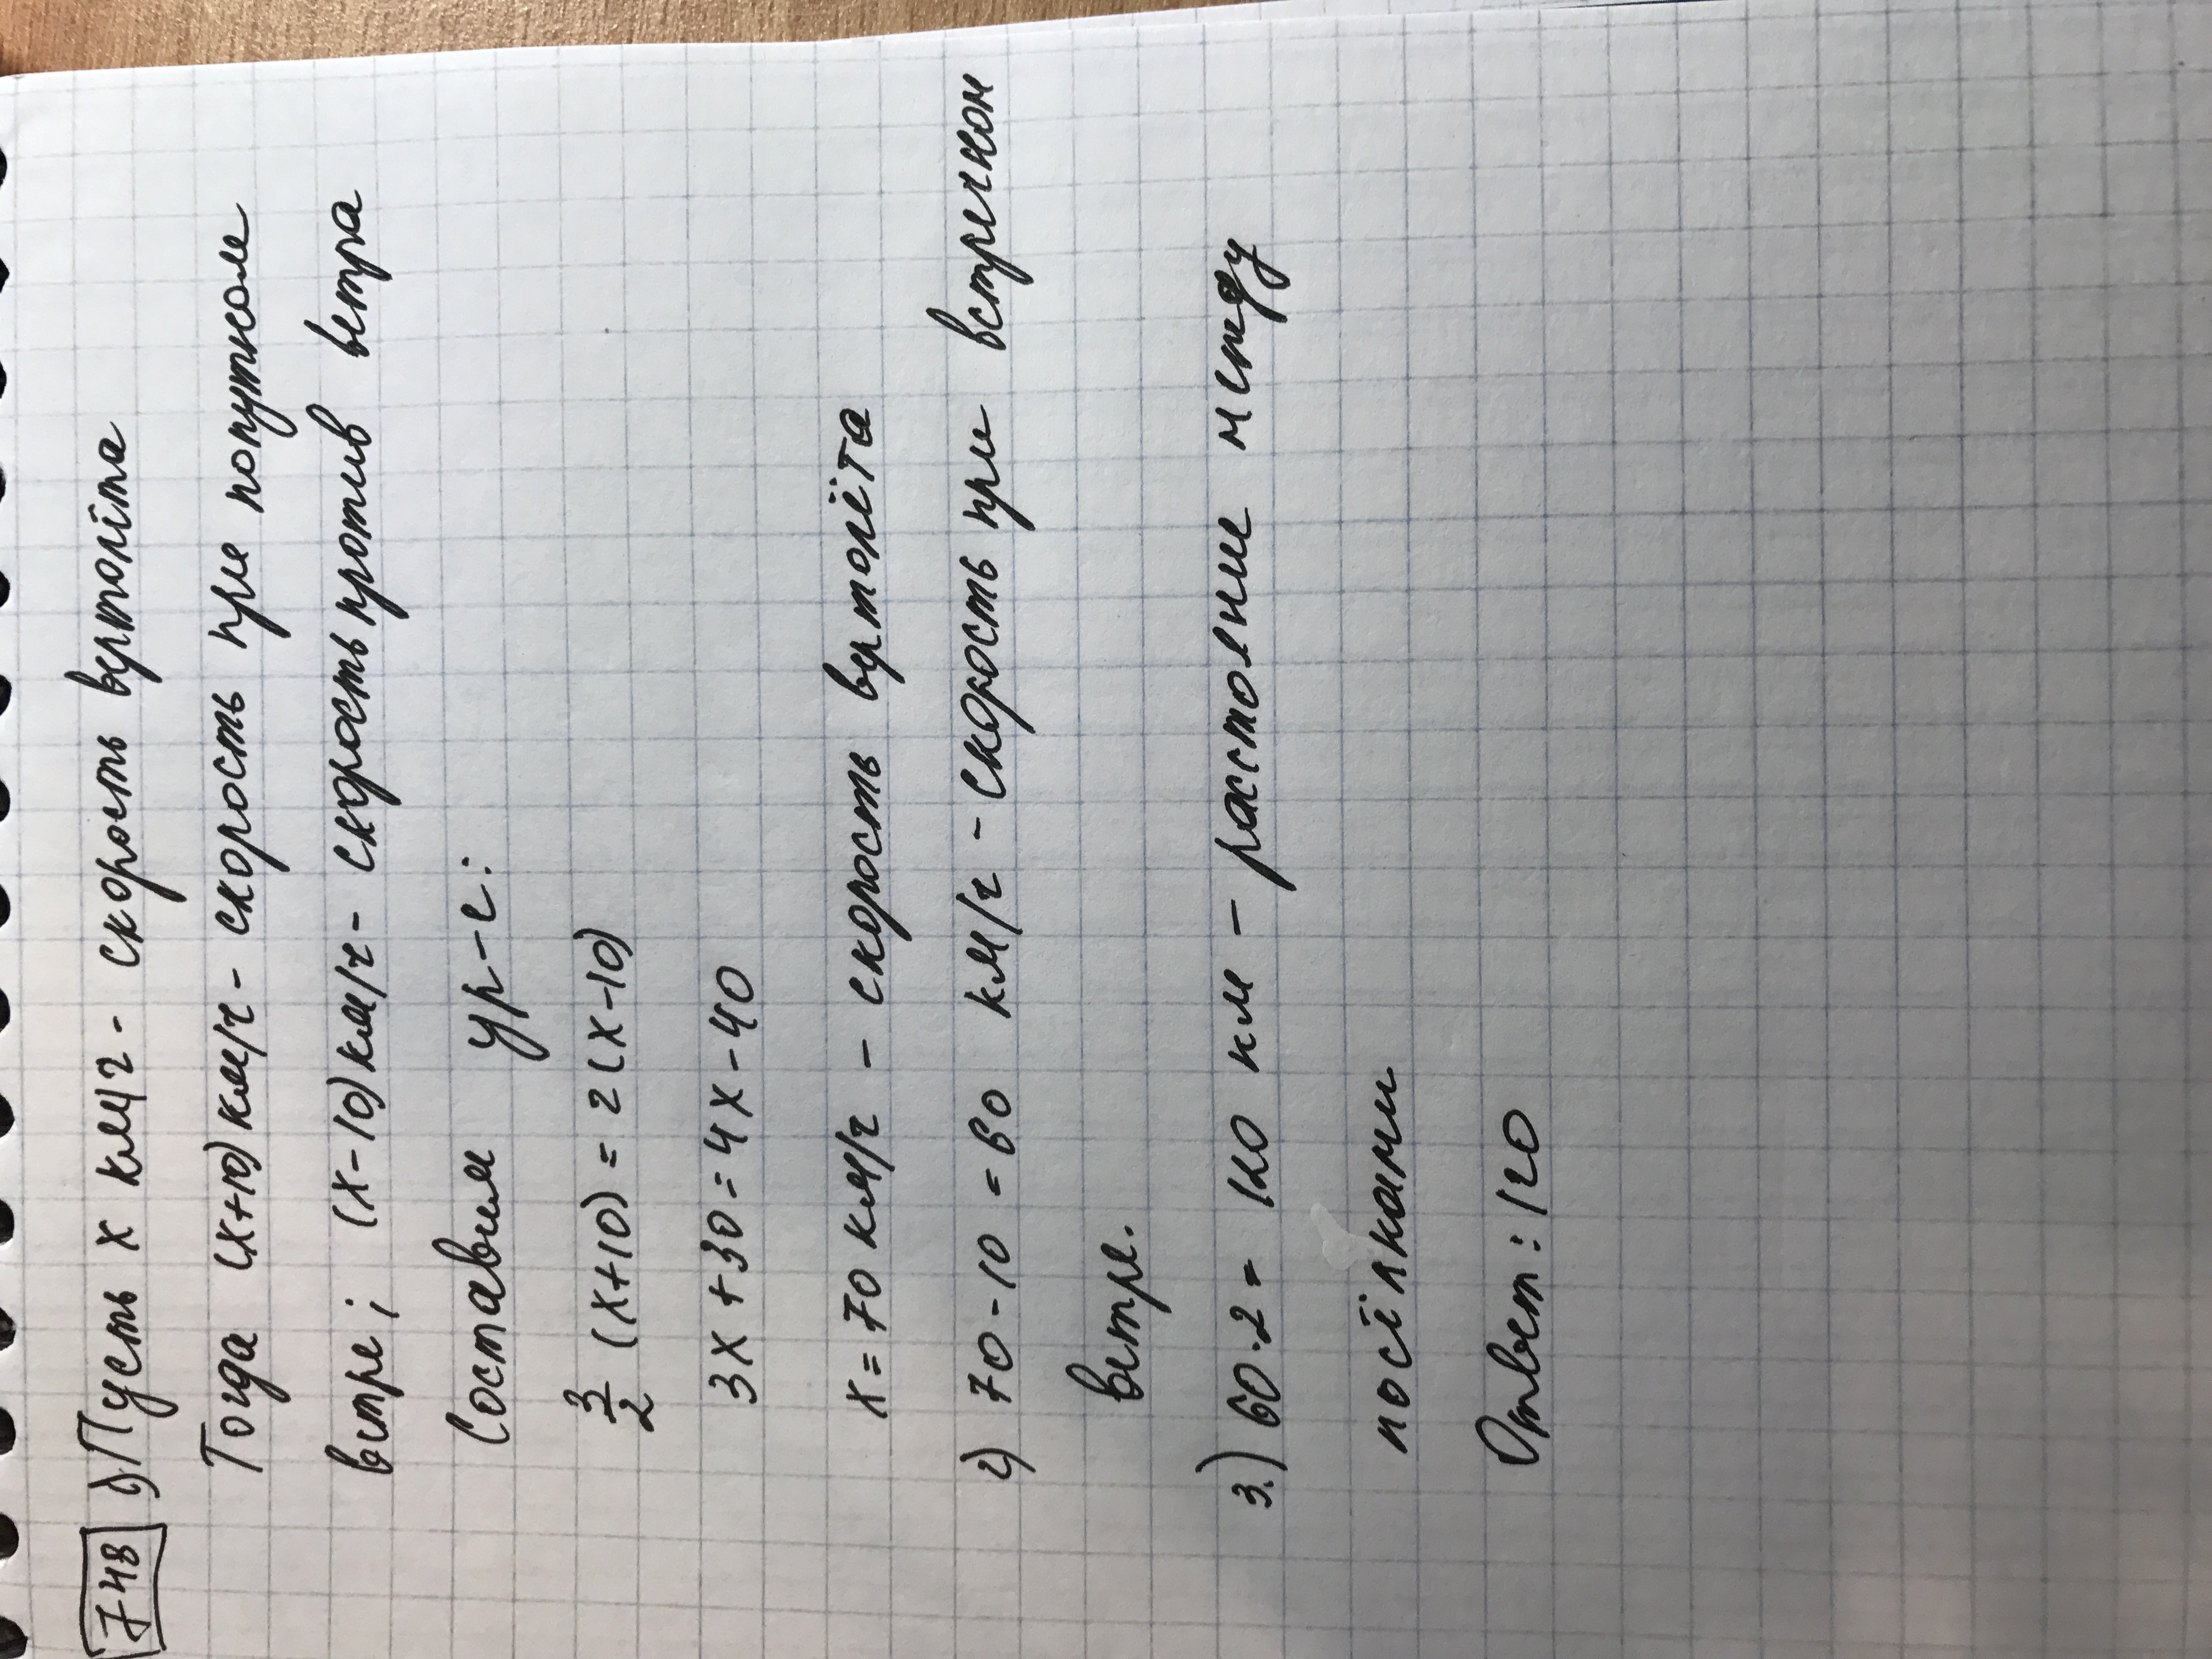 748 1) Пусть x км/ч - скорость вертолёта
Тогда (x+10) км/ч - скорость при попутном
ветре; (x-10) км/ч - скорость против ветра
Составим ур-е:
3/2 (x+10) = 2(x-10)
3x+30=4x-40
x=70 км/ч - скорость вертолёта
2) 70-10=60 км/ч - скорость при встречном
ветре.
3.) 60·2= 120 км - расстояние между
посёлками
Ответ: 120